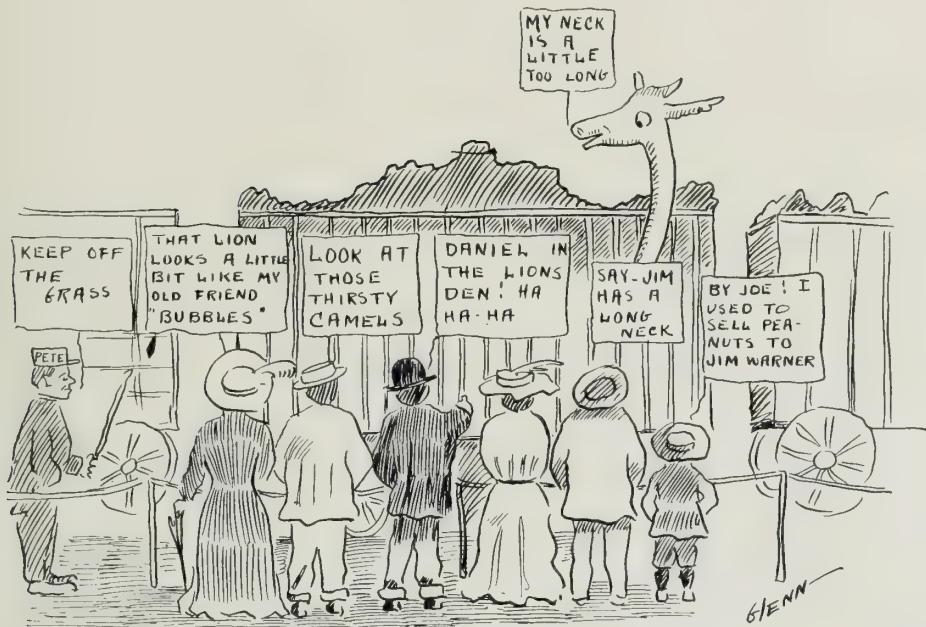 MY NECK
IS A
LITTLE
TOO LONG
KEEP OFF
THE
GRASS
THAT LION
LOOKS A LITTLE
BIT LIKE MY
OLD FRIEND
"BUBBLES"
LOOK AT
THOSE
THIRSTY
CAMELS
DANIEL IN
THE LIONS
DEN! HA
HA-HA
SAY-JIM
HAS A
LONG
NECK
BY JOE! I
USED TO
SELL PEA-
NUTS TO
JIM WARNER
PETE
GLENN